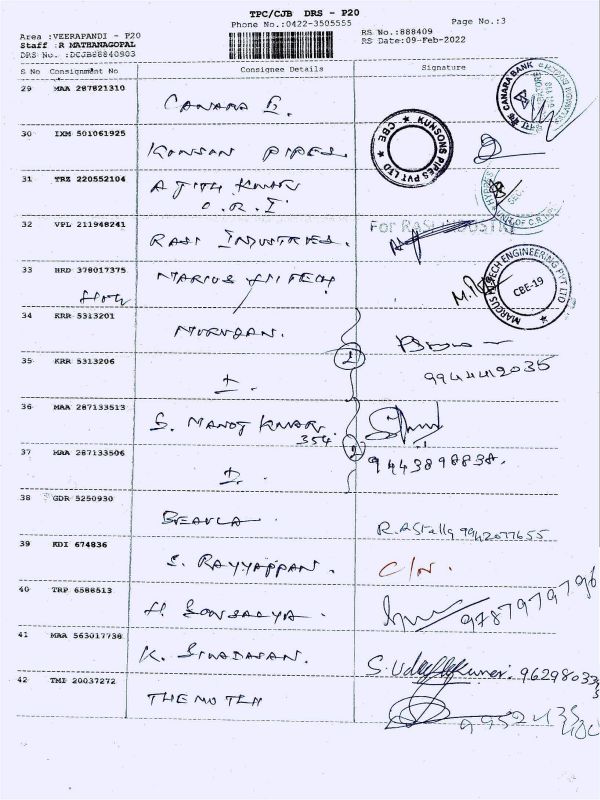 TPC/CJB DRS - P20
Phone No.:0422-3505555
Page No.:3
Area :VEERAPANDI - P20
Staff :R MATHANAGOPAL
DRS No. :DCJB88840903
RS No.:888409
RS Date:09-Feb-2022
S No Consignment No Consignee Details Signature
29 MAA 287821310 CANARA B.
CANARA BANK
30 IXM 501061925 KONSON PIPES
KUNSONS PIPES PVT LTD ★ CBE ★
31 TRZ 220552104 AJITH KMAR
O.R.I.
32 VPL 211948241 RASI INDUSTRIES.
For RASI INDUSTRY
33 HRD 378017375 MARIUS HITECH
MARGUS HITECH ENGINEERING PVT LTD ★
CBE-19
34 KRR 5313201 MURUGAN.
35 KRR 5313206 I. 9944412035
36 MAA 287133513 S. MANOJ KMAR
354
37 MAA 287133506 D. 9443898838.
38 GDR 5250930 BEAULA R. AStella 9942077655
39 KDI 674836 S. RAYYAPPAN. C/N.
40 TRP 6588513 9787979796
41 MAA 563017738 K. SIVADASAN. S. 
42 TMI 20037272 THEMOTEH